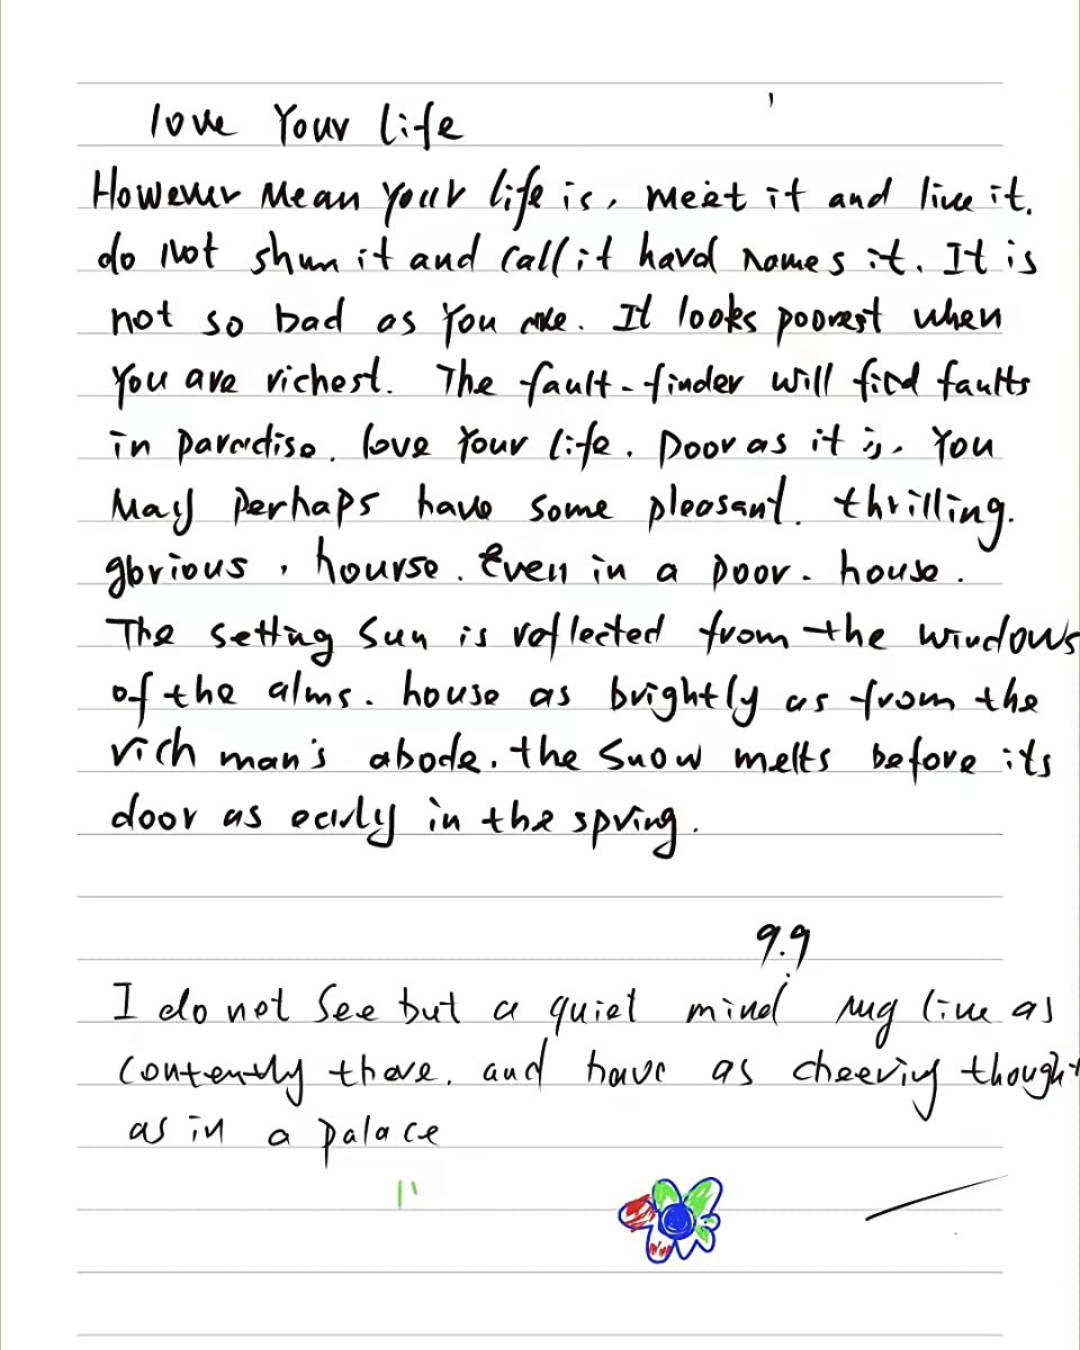 love Your life
However Mean your life is, meet it and live it.
do Not shun it and call it hard names it. It is
not so bad as You are. It looks poorest when
You are richest. The fault-finder will find faults
in paradise. love Your life. Poor as it is. You
May Perhaps have some pleasant. thrilling.
glorious, hourse. Even in a poor. house.
The setting Sun is reflected from the windows
of the alms. house as brightly as from the
rich man's abode. the Snow melts before its
door as early in the spring.
9.9
I do not See but a quiet mind may live as
contently there. and have as cheering thought
as in a palace